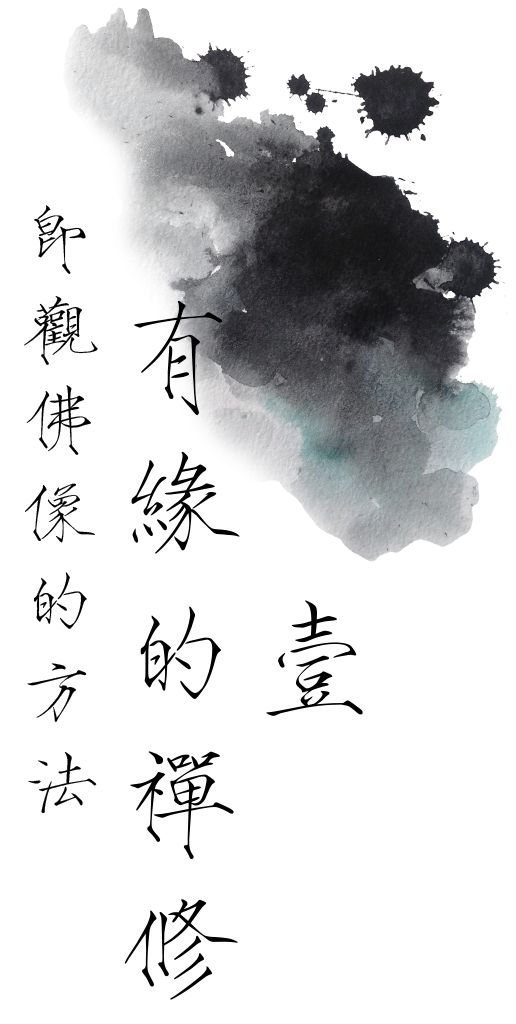 壹
有緣的禪修
即觀佛像的方法